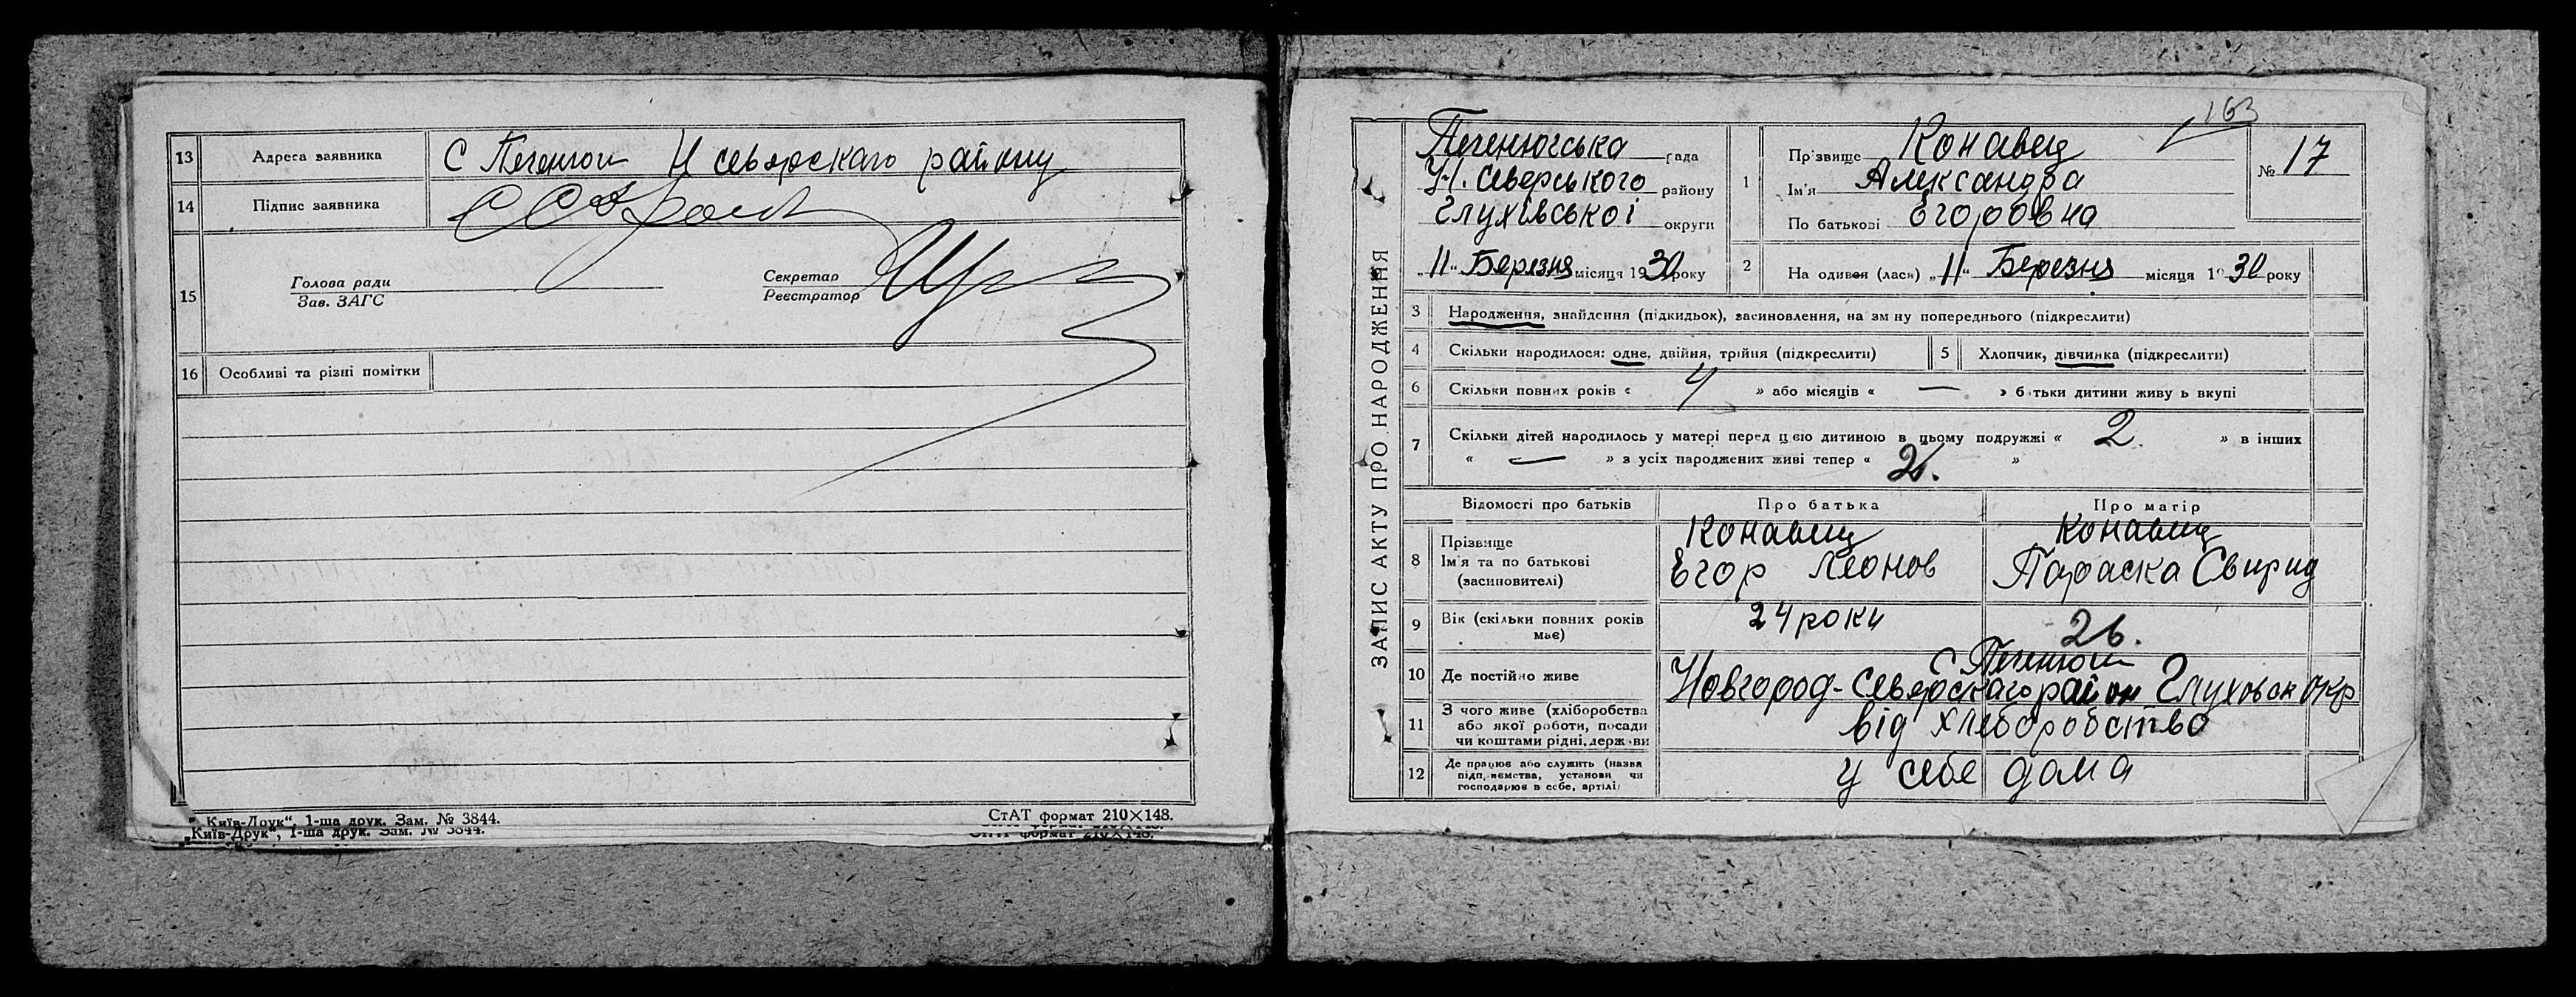 13 Адреса заявника С Печенюги Н северскаго району
14 Підпис заявника
15 Голова ради
Зав. ЗАГС
Секретар
Реєстратор
16 Особливі та різні помітки
„Київ-Друк“, 1-ша друк. Зам. № 3844.
СтАТ формат 210×148.
„Київ-Друк“, 1-ша друк. Зам. № 3844.
формат 210×148.
163
ЗАПИС АКТУ ПРО НАРОДЖЕННЯ
Печенюгська рада
Н. Сіверського району
Глухівської округи
„11“ Березня місяця 1930 року
1 Прізвище Конавец
Ім'я Александра
По батькові Егоровна
№ 17
2 На одився (лася) „11“ Березня місяця 1930 року
3 Народження, знайдення (підкидьок), засиновлення, на зм ну попереднього (підкреслити)
4 Скільки народилося: одне, двійня, трійня (підкреслити)
5 Хлопчик, дівчинка (підкреслити)
6 Скільки повних років « 4 » або місяців « — » б тьки дитини живу ь вкупі
7 Скільки дітей народилось у матері перед цією дитиною в цьому подружжі « 2. » в інших
« — » з усіх народжених живі тепер « 2. »
Відомості про батьків Про батька Про матір
8 Прізвище Конавец Конавец
Ім'я та по батькові Егор Леонов Параска Свирид
(засиновителі)
9 Вік (скільки повних років має) 24 роки 26.
10 Де постійно живе С Печенюги
Новгород-Северскаго район Глуховск окр
11 З чого живе (хліборобства або якої роботи, посади чи коштами рідні, держави від хлеборобство
12 Де працює або служить (назва підприємства, установи чи господарює в себе, артілі) у себе дома